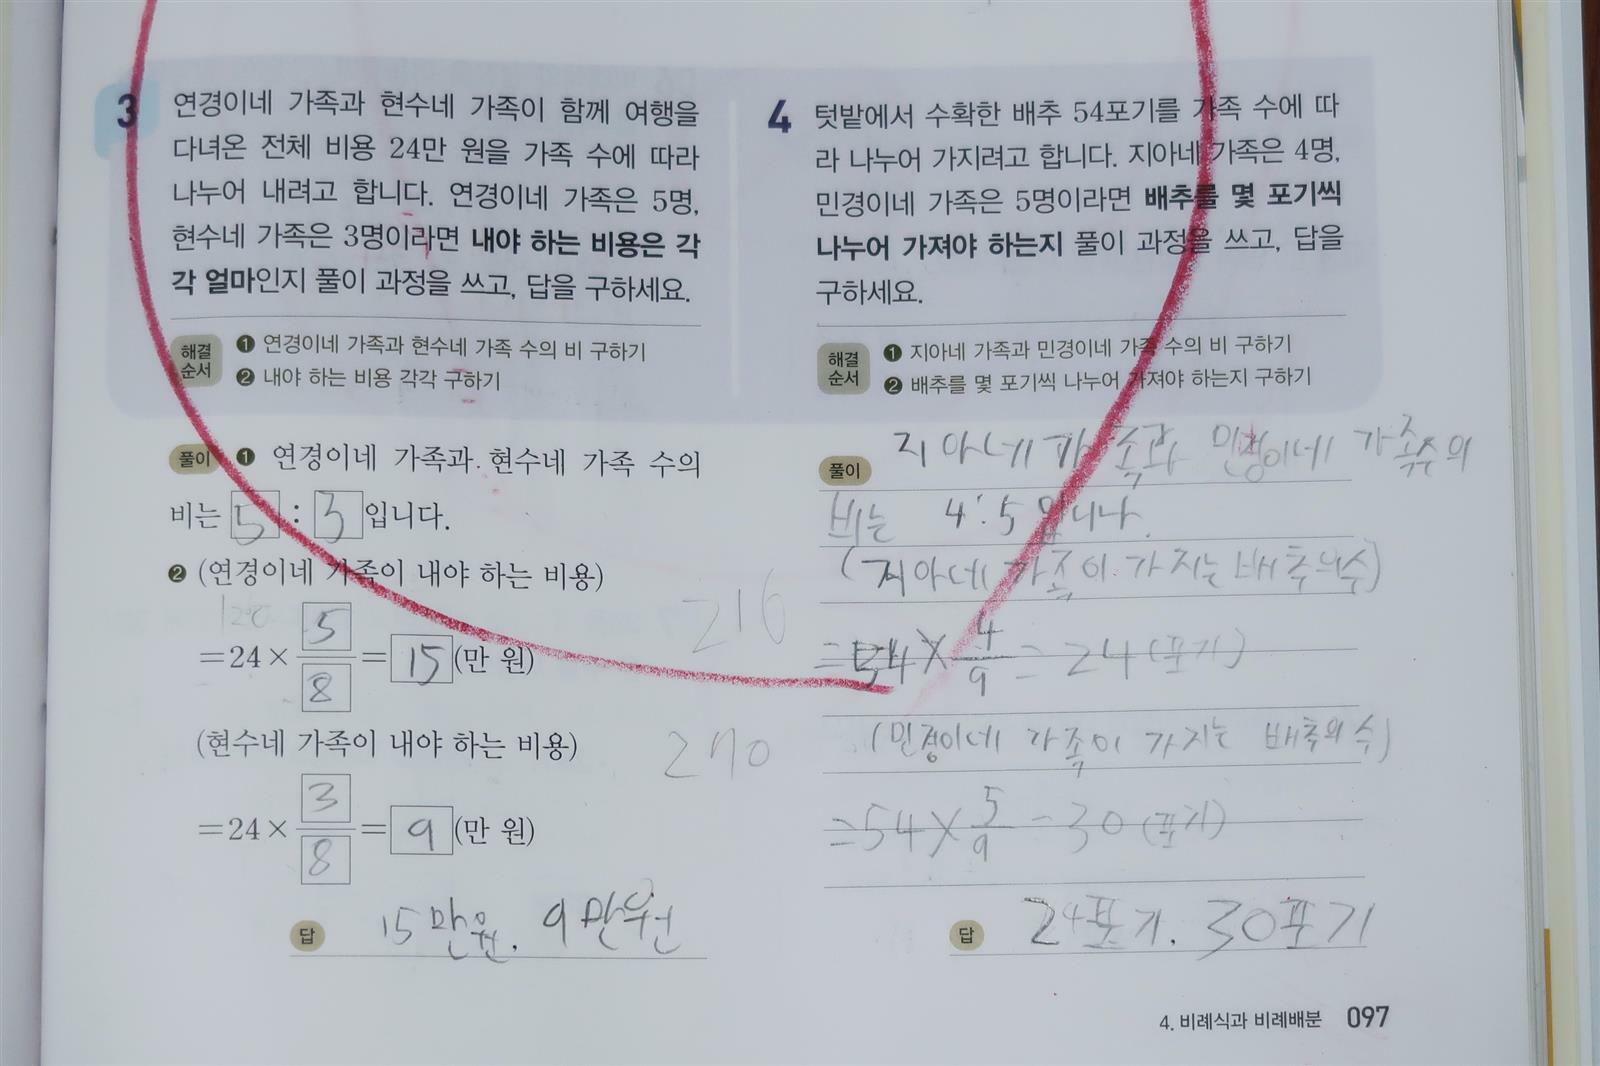 3 연경이네 가족과 현수네 가족이 함께 여행을
다녀온 전체 비용 24만 원을 가족 수에 따라
나누어 내려고 합니다. 연경이네 가족은 5명,
현수네 가족은 3명이라면 내야 하는 비용은 각
각 얼마인지 풀이 과정을 쓰고, 답을 구하세요.
해결
순서
❶ 연경이네 가족과 현수네 가족 수의 비 구하기
❷ 내야 하는 비용 각각 구하기
풀이 ❶ 연경이네 가족과 현수네 가족 수의
비는 5 : 3 입니다.
❷ (연경이네 가족이 내야 하는 비용)
120
=24× 5/8 = 15 (만 원)
(현수네 가족이 내야 하는 비용)
=24× 3/8 = 9 (만 원)
답 15만원, 9만원
216
270
4 텃밭에서 수확한 배추 54포기를 가족 수에 따
라 나누어 가지려고 합니다. 지아네 가족은 4명,
민경이네 가족은 5명이라면 배추를 몇 포기씩
나누어 가져야 하는지 풀이 과정을 쓰고, 답을
구하세요.
해결
순서
❶ 지아네 가족과 민경이네 가족 수의 비 구하기
❷ 배추를 몇 포기씩 나누어 가져야 하는지 구하기
풀이 지아네 가족과 민경이네 가족수의
비는 4:5 입니다.
(지아네 가족이 가지는 배추의수)
=54×4/9=24(포기)
(민경이네 가족이 가지는 배추의 수)
=54×5/9=30(포기)
답 24포기, 30포기
4. 비례식과 비례배분 097